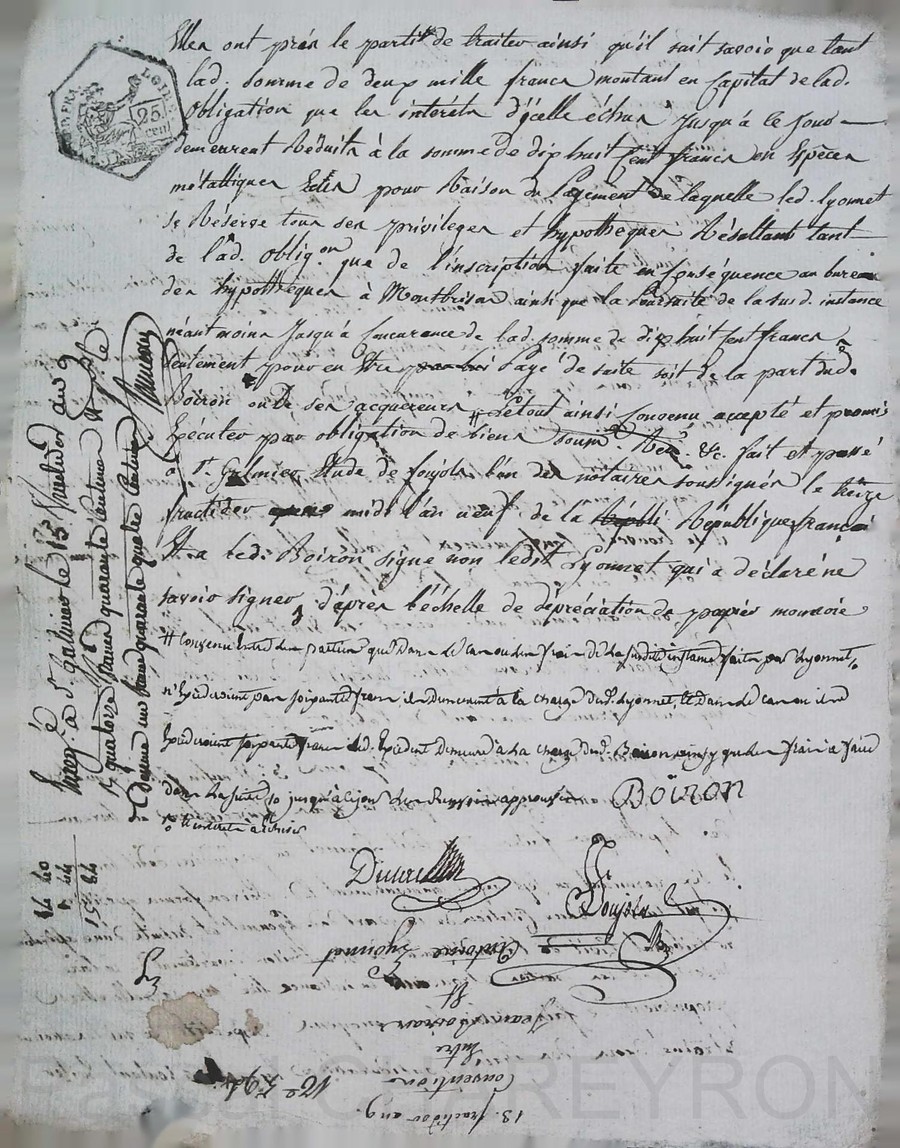 Elles ont pris le parti de traiter ainsi qu'il suit savoir que tant
lad. somme de deux mille francs montant en Capital de lad.
Obligation que les intérêts d'ycelle échus Jusqu'à ce Jour
demeurent Réduits à la somme de dix huit Cent francs en Espèces
métalliques pour Raison du Payement de laquelle led. Lyonnet
se Réserve tous ses privileges et hypotheques Résultant tant
de lad. Oblig.on que de l'inscription faite en Conséquence au bureau
des hypothèques à Montbrison ainsi que la poursuite de la susd. instance
néantmoins Jusqu'à Concurance de lad. somme de dix huit Cent francs
seulement pour en Etre Payé de suite soit de la part dud.
Boiron ou de ses acquereurs # Le tout ainsi Convenu accepté et promis
Exécuter par obligation de biens soum.on &c. fait et passé
à St. Galmier Etude de foujols l'un des notaires soussignés le treize
fructidor midi l'an neuf de la Republi République française
Et a led. Boiron signé non ledit Lyonnet qui a déclaré ne
savoir signer d'après l'échelle de dépréciation de papier monnoie
# Convenu Entre les parties que dans le cas ou les frais de la susdite instance faite par Lyonnet
n'Excederoient pas soixante francs ils demeureront à la charge dud. Lyonnet, Et dans le cas ou ils
Excederoient soixante francs led. Excédent Demeure à la charge dud. Boiron ainsy que les frais à faire
dans la suite jusqu'à ce jour approuvé
BOIRON
Foujols
Enreg.é à St galmier le 15 fructidor an 9
quatorze francs quarante Centimes
un franc quarante quatre Centimes
14 40
1 44
15 84
25
cent
REP. FRA.
13. fructidor an 9.
Convention
Entre
Jean Boiron
Et
Antoine Lyonnet
Pascal CHAREYRON